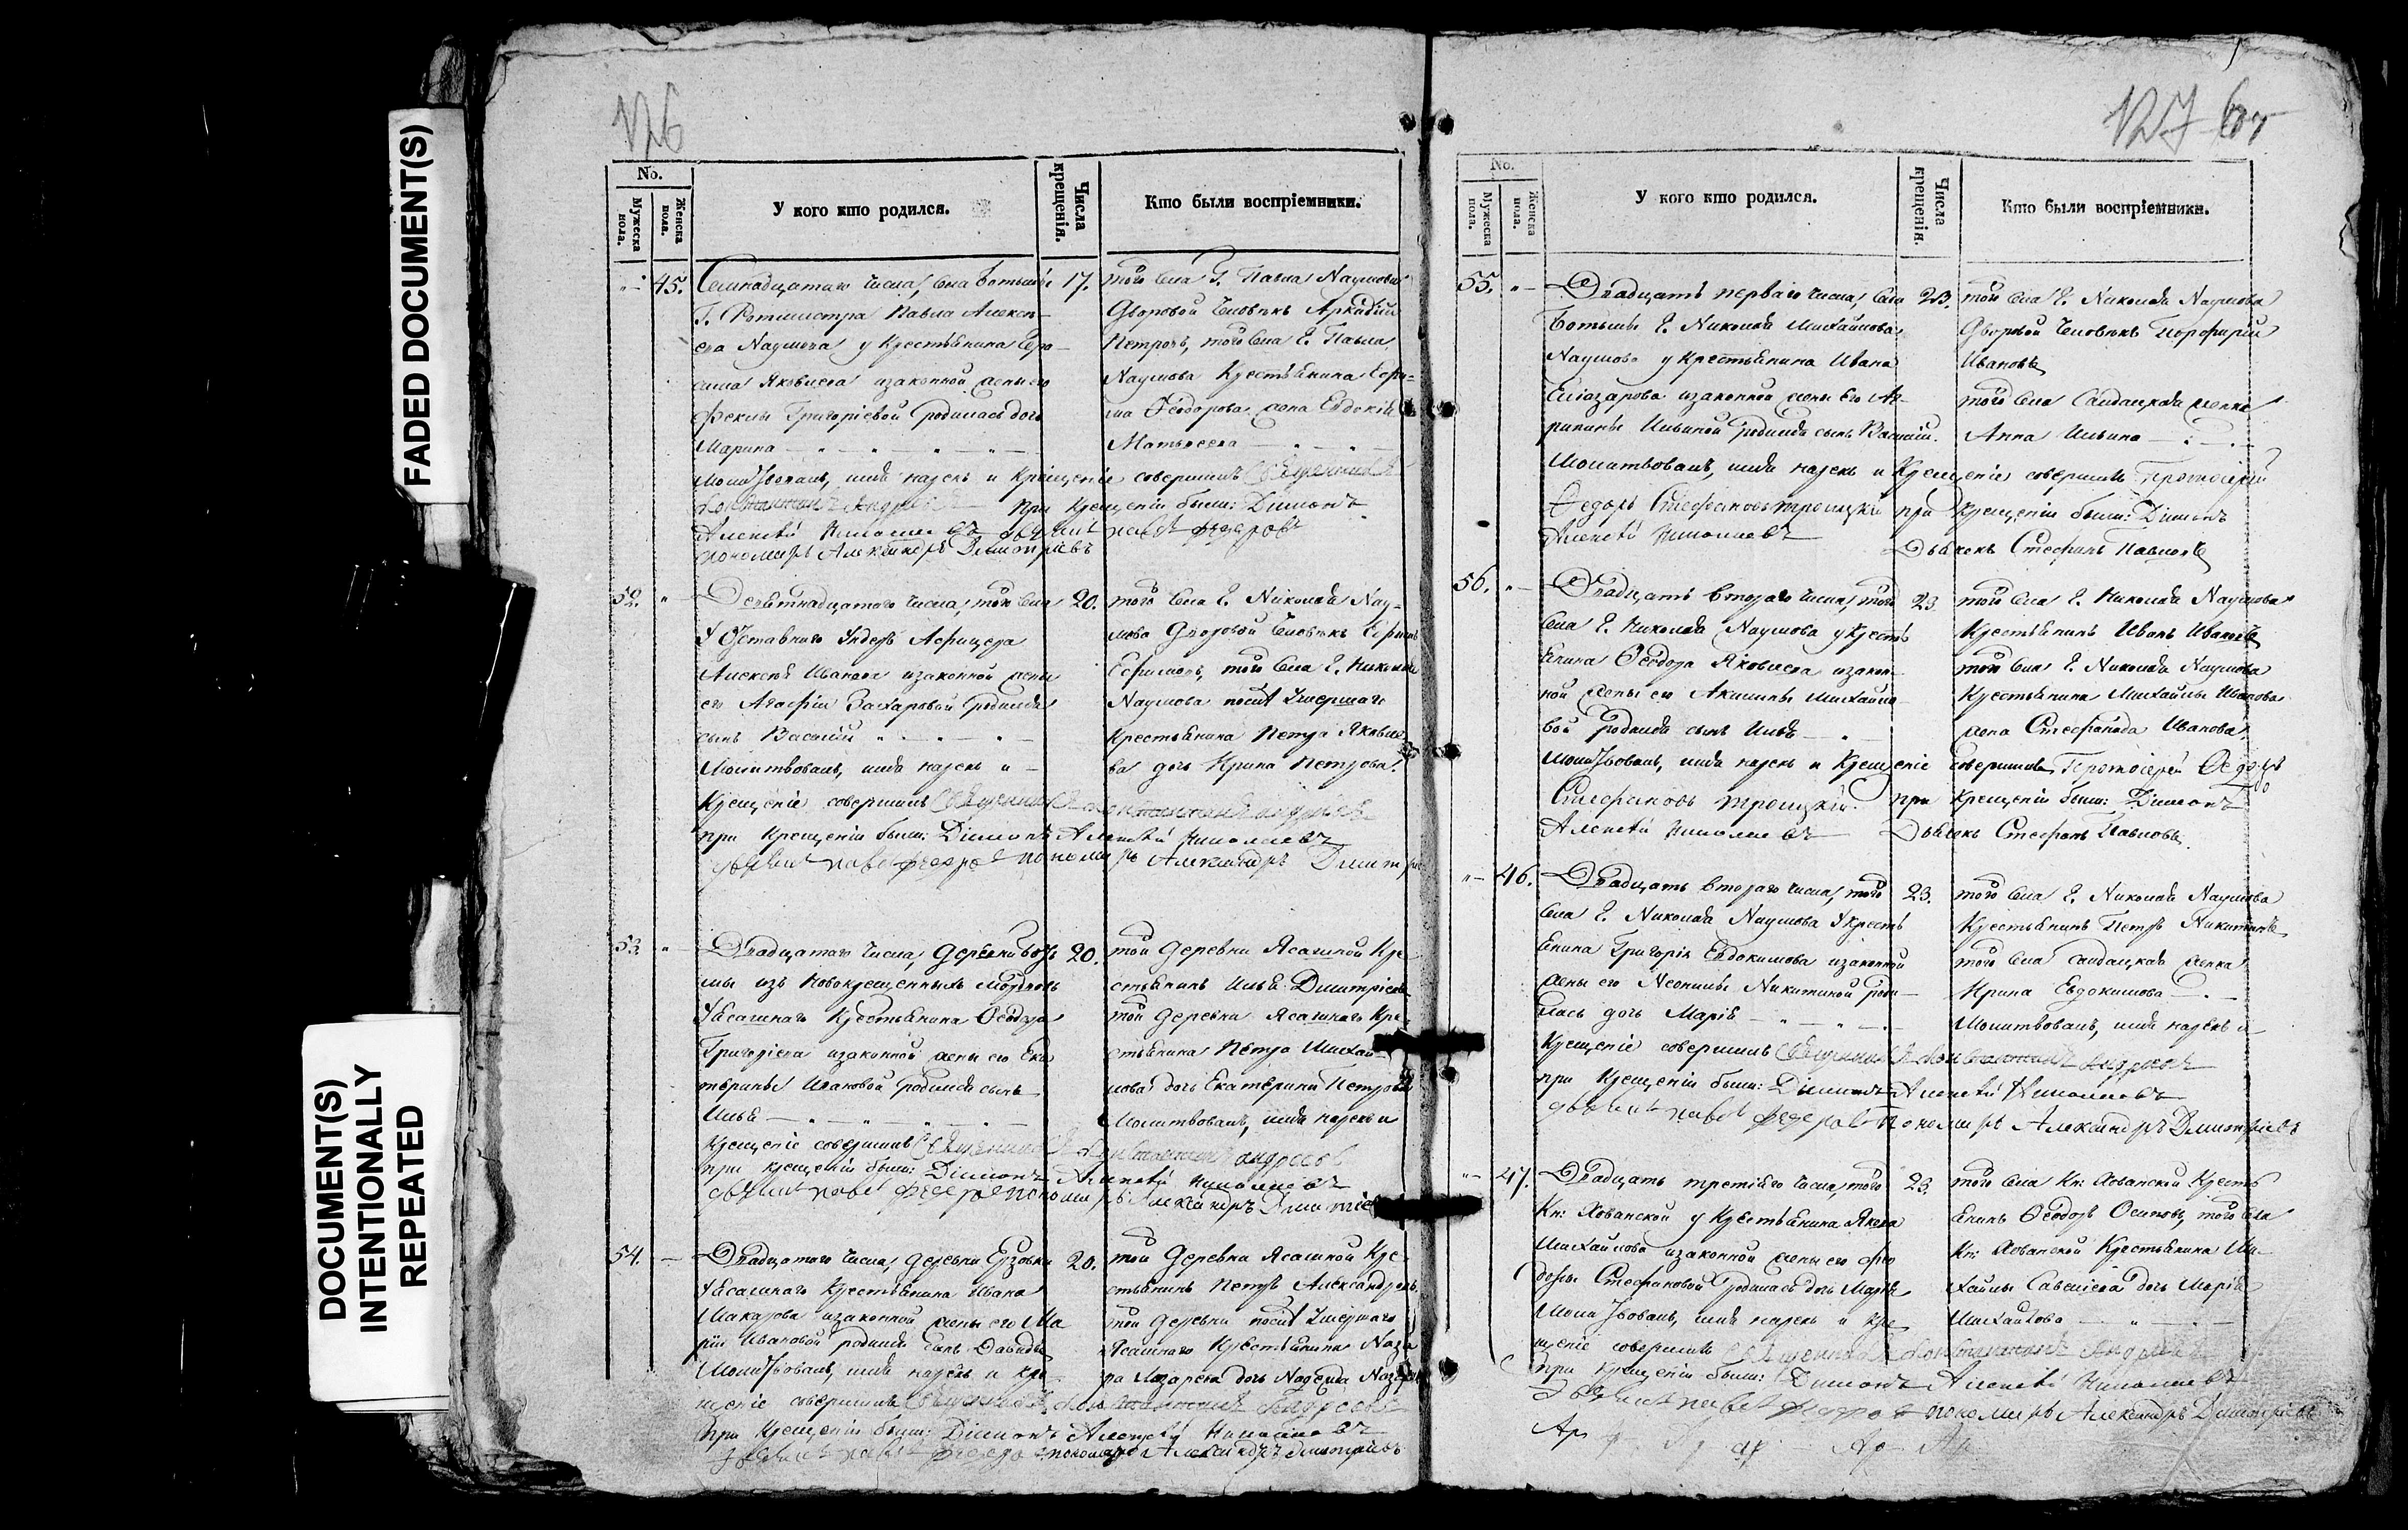 FADED DOCUMENT(S)
DOCUMENT(S)
INTENTIONALLY
REPEATED
126
No.
Мужеска пола.
Женска пола.
У кого кто родился.
Числа крещенія.
Кто были воспріемники.
45. Семнадцатаго числа, села Ботьмы 17. того села Г. Павла Наумова
Г. Ротмистра Павла Алексѣ- Дворовой человѣкъ Аркадій
ева Наумова у крестьянина Гера- Петровъ, того села Г. Павла
сима Яковлева изаконной жены его Наумова крестьянина Ефи-
Феклы Григоріевой родилась дочь ма Ѳеодорова жена Евдокія
Марина Матвѣева
Молитвовалъ, имя нарекъ и крещеніе совершилъ Священникъ
Константинъ Андреевъ при крещеніи были: Діаконъ
Алексѣй Николаевъ дьячекъ Павелъ Федоровъ
пономарь Александръ Димитріевъ
52. Девятнадцатаго числа, того села 20. того села Г. Николая Нау-
У Отставнаго Ундеръ Афицера мова Дворовой человѣкъ Ефимъ
Алексѣя Иванова изаконной жены Ефимовъ, того села Г. Николая
его Агафіи Захаровой родился Наумова послѣ умершаго
сынъ Василій крестьянина Петра Яковле-
Молитвовалъ, имя нарекъ и ва дочь Ирина Петрова.
крещеніе совершилъ Священникъ Константинъ Андреевъ
при крещеніи были: Діаконъ Алексѣй Николаевъ
дьячекъ Павелъ Федоровъ пономарь Александръ Димитр
53. Двадцатаго числа, деревни 20. той деревни Ясашной кре
мы изъ новокрещенныхъ мордвовъ стьянинъ Илья Димитріевъ
У Ясашнаго крестьянина Ѳеодора той деревни Ясашнаго кре-
Григоріева изаконной жены его Ека стьянина Петра Михай-
терины Ивановой родился сынъ лова дочь Екатерина Петрова
Илья Молитвовалъ, имя нарекъ и
крещеніе совершилъ Священникъ Константинъ Андреевъ
при крещеніи были: Діаконъ Алексѣй Николаевъ
дьячекъ Павелъ Федоровъ пономарь Александръ Димитріе
54. Двадцатаго числа, деревни Ерзовки 20. той деревни Ясашной кре-
У Ясашнаго крестьянина Ивана стьянинъ Петръ Александровъ,
Макарова изаконной жены его Ма той деревни послѣ умершаго
ріи Ивановой родился сынъ Давидъ Ясашнаго крестьянина Наза
Молитвовалъ, имя нарекъ и кре ра Лазарева дочь Надежда Назарова
щеніе совершилъ Священникъ Константинъ Андреевъ
при крещеніи были: Діаконъ Алексѣй Николаевъ
дьячекъ Павелъ Федоровъ пономарь Александръ Димитріевъ
127
No.
Мужеска пола.
Женска пола.
У кого кто родился.
Числа крещенія.
Кто были воспріемники.
55. Двадцать перваго числа, села 23. того села Г. Николая Наумова
Ботьмы Г. Николая Михайлова Дворовой человѣкъ Порфирій
Наумова у крестьянина Ивана Ивановъ
Еліазарова изаконной жены его Аг- того села Салдацкая женка
рипины Ильиной родился сынъ Василій. Анна Ильина
Молитвовалъ, имя нарекъ и крещеніе совершилъ Протоіерей
Федоръ Стефановъ Троицкій при крещеніи были: Діаконъ
Алексѣй Николаевъ
Дьячекъ Стефанъ Павловъ
56. Двадцать втораго числа, того 23 того села Г. Николая Наумова
села Г. Николая Наумова у кресть крестьянинъ Иванъ Ивановъ
янина Ѳеодора Яковлева изакон- того села Г. Николая Наумова
ной жены его Акилины Михайло- крестьянина Михайлы Иванова
вой родился сынъ Илья жена Стефанида Иванова,
Молитвовалъ, имя нарекъ и крещеніе совершилъ Протоіерей Ѳедоръ
Стефановъ Троицкій. при крещеніи были: Діаконъ
Алексѣй Николаевъ Дьячекъ Стефанъ Павловъ.
46. Двадцать втораго числа, того 23. того села Г. Николая Наумова
села Г. Николая Наумова У кресть крестьянинъ Петръ Никитинъ
янина Григорія Евдокимова изаконной того села Салдацкая женка
жены его Неонилы Никитиной роди- Ирина Евдокимова
лась дочь Марія Молитвовалъ, имя нарекъ и
крещеніе совершилъ Священникъ Константинъ Андреевъ
при крещеніи были: Діаконъ Алексѣй Николаевъ
дьячекъ Павелъ Федоровъ пономарь Александръ Димитріевъ
47. Двадцать третьяго числа, того 23. того села Кн: Хованской кресть
Кн: Хованской у крестьянина Якова янинъ Ѳеодоръ Осиповъ, того села
Михайлова изаконной жены его Фео Кн: Хованской крестьянина Ми-
доры Стефановой родилась дочь Марія хайлы Савельева дочь Марія
Молитвовалъ, имя нарекъ и кре Михайлова
щеніе совершилъ Священникъ Константинъ Андреевъ
при крещеніи были: Діаконъ Алексѣй Николаевъ
дьячекъ Павелъ Федоровъ пономарь Александръ Димитріевъ